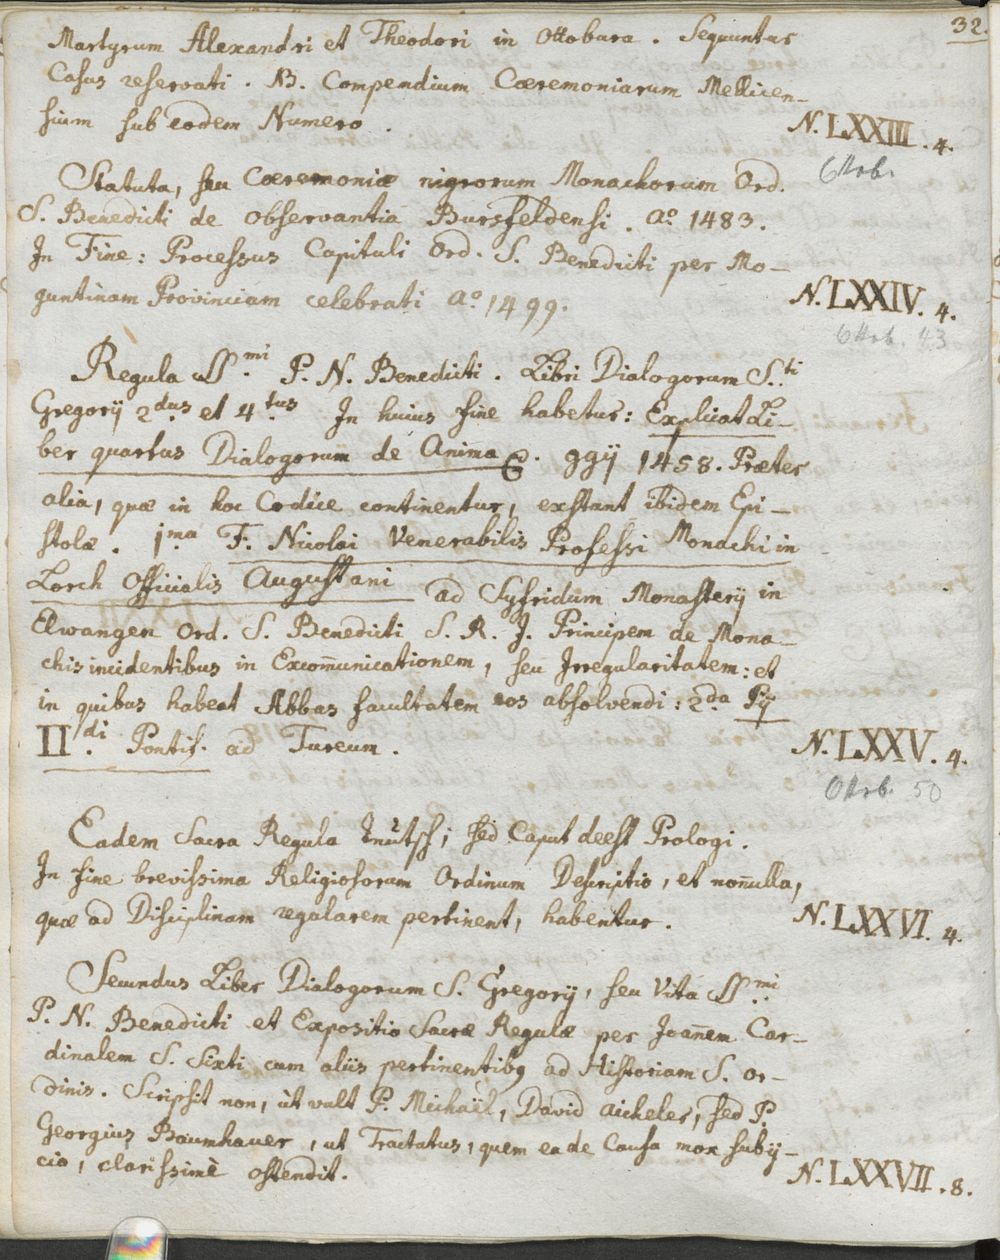 32.
Martyrum Alexandri et Theodori in Ottobura. Sequuntur
Casus reservati. NB. Compendium Cæremoniarum Mellicen-
sium sub eodem Numero.
N. LXXIII. 4.
Ottob.
Statuta, seu Cæremoniæ nigrorum Monachorum Ord.
S. Benedicti de observantia Bursfeldensi. aº 1483.
In Fine: Processus Capituli Ord. S. Benedicti per Mo-
guntinam Provinciam celebrati aº 1499.
N. LXXIV. 4.
Ottob. 43
Regula SS.mi P. N. Benedicti. Libri Dialogorum S.ti
Gregorij 2dus et 4tus In huius fine habetur: Explicat Li-
ber quartus Dialogorum de Anima G. ggij 1458. Præter
alia, quæ in hoc Codice continentur, exstant ibidem Epi-
stolæ. 1ma F. Nicolai Venerabilis Professi Monachi in
Lorch Officialis Augustani ad Syfridum Monasterij in
Elwangen Ord. S. Benedicti S. R. J. Principem de Mona-
chis incidentibus in Excom̄unicationem, seu Irregularitatem: et
in quibus habeat Abbas facultatem eos absolvendi: 2da Pij
IIdi. Pontif. ad Turcum.
N. LXXV. 4.
Ottob. 50
Eadem Sacra Regula teütsch, sed Caput deest Prologi.
In fine brevissima Religiosorum Ordinum Descriptio, et non̄ulla,
quæ ad Disciplinam regularem pertinent, habentur.
N. LXXVI. 4.
Secundus Liber Dialogorum S. Gregorij, seu Vita SS.mi
P. N. Benedicti et Expositio Sacræ Regulæ per Joan̄em Car-
dinalem S. Sixti cum aliis pertinentibq ad Historiam S. Or-
dinis. Scripsit non, ut vult P. Michaël, David Aicheler, sed P.
Georgius Baumhauer, ut Tractatus, quem ea de Causa mox subij-
cio, clarissimè ostendit.
N. LXXVII. 8.